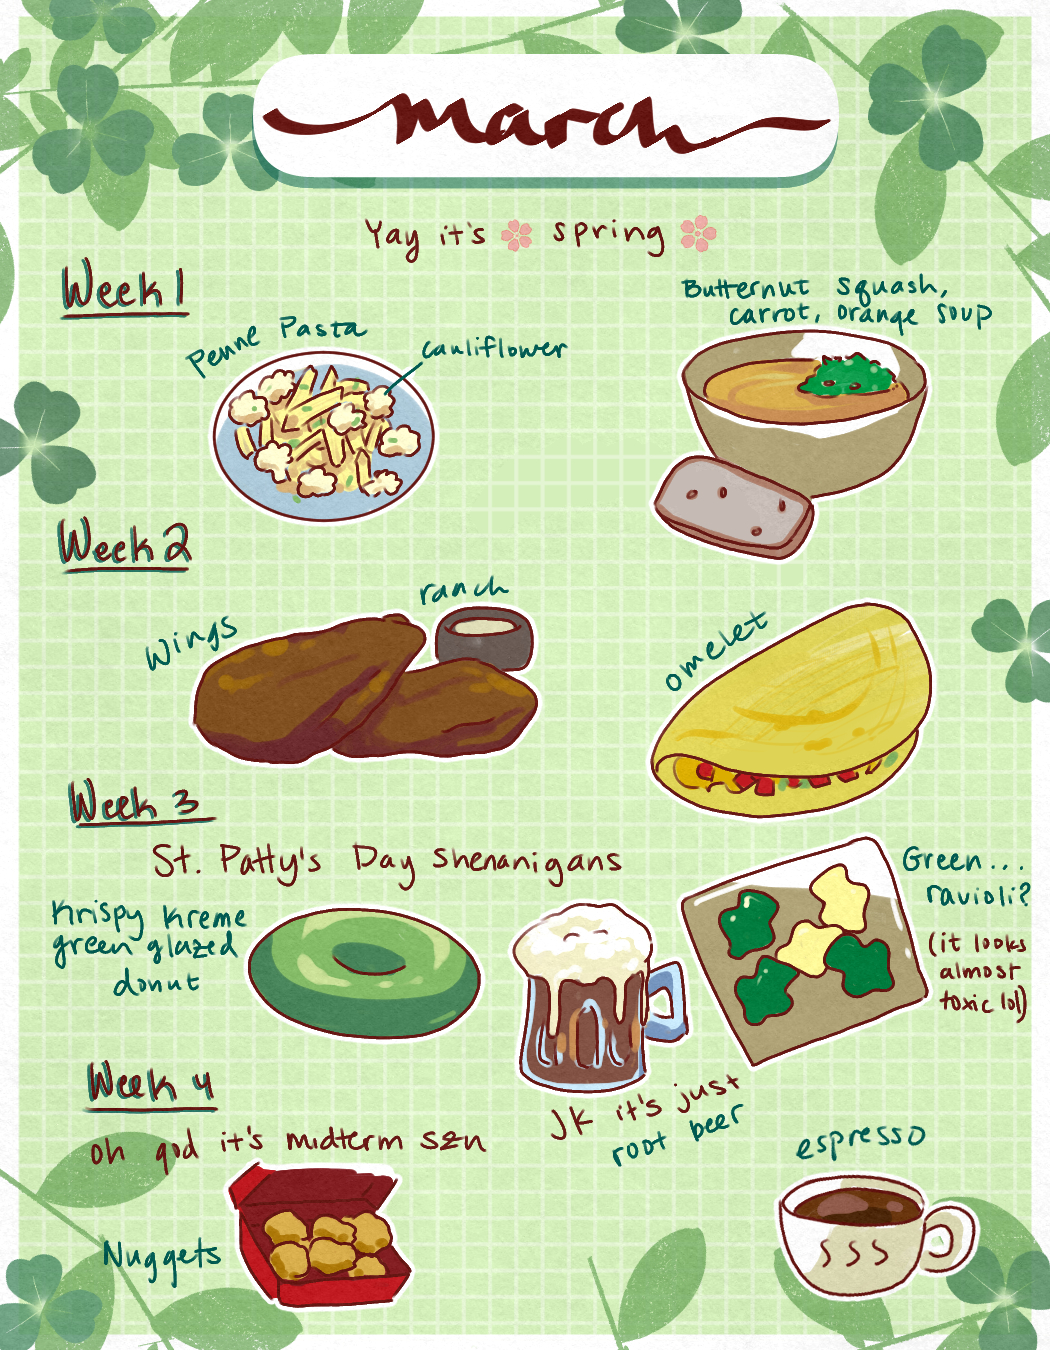 march
Yay it's spring
Week 1
Penne Pasta
cauliflower
Butternut squash,
carrot, orange soup
Week 2
Wings
ranch
omelet
Week 3
St. Patty's Day Shenanigans
Krispy Kreme
green glazed
donut
JK it's just
root beer
Green...
ravioli?
(it looks
almost
toxic lol)
Week 4
oh god it's midterm szn
Nuggets
espresso